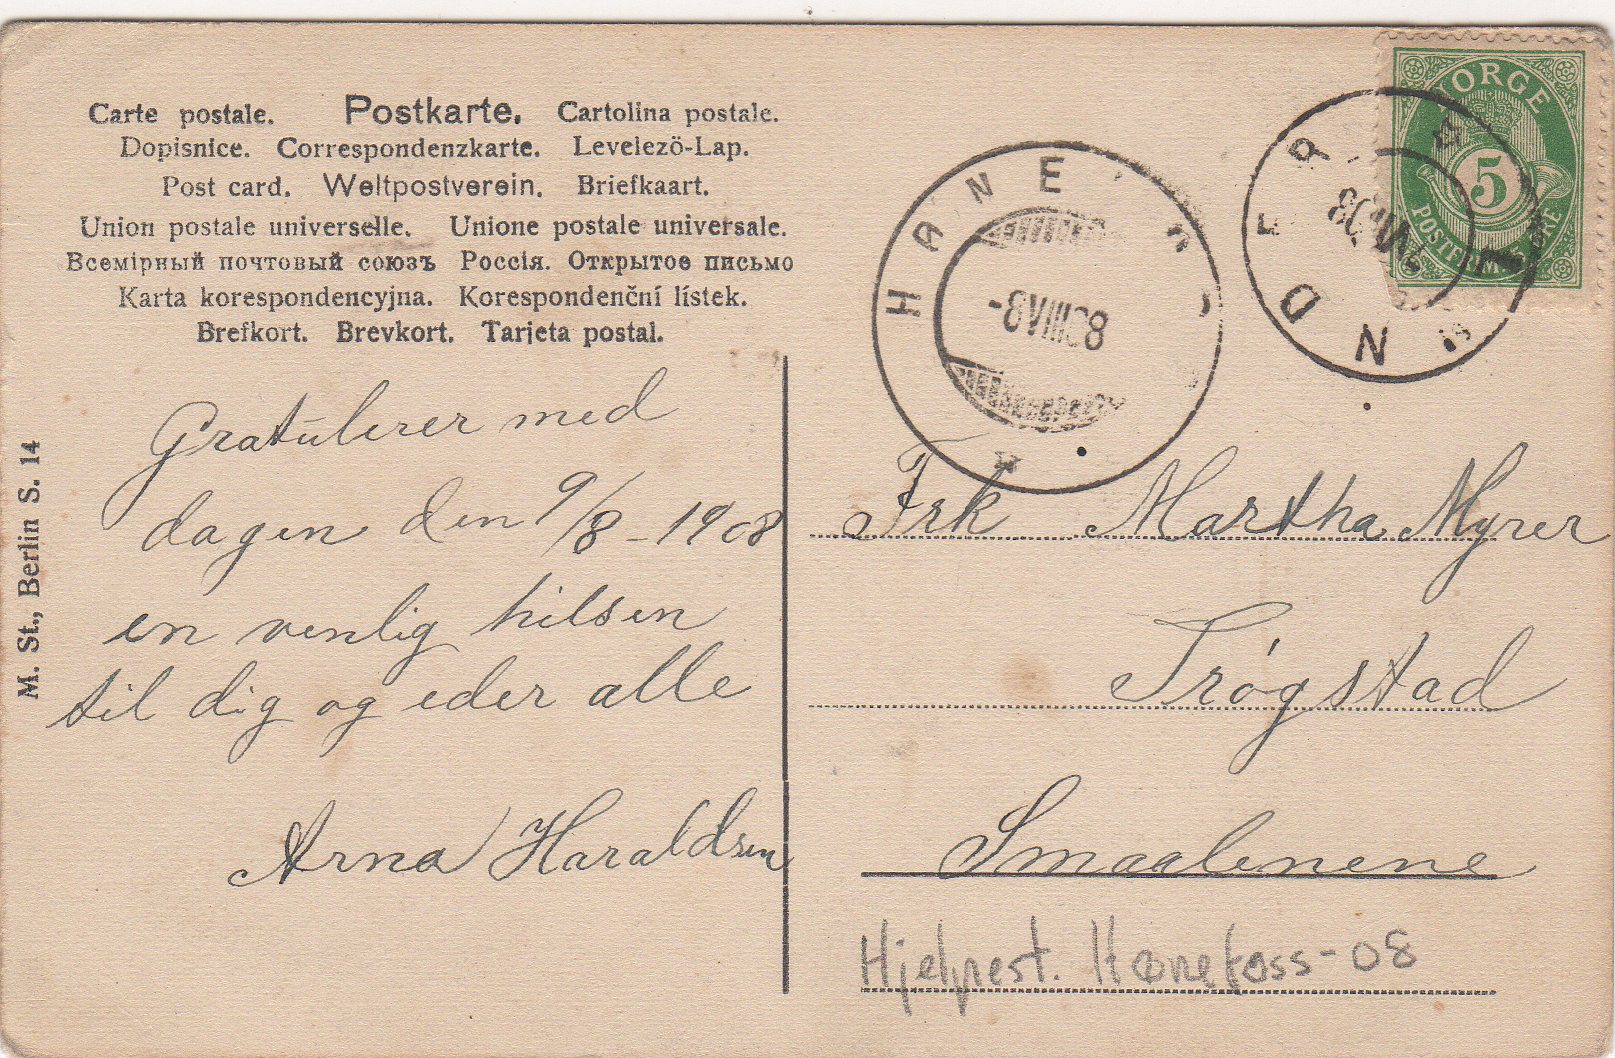 Carte postale. Postkarte. Cartolina postale.
Dopisnice. Correspondenzkarte. Levelezö-Lap.
Post card. Weltpostverein. Briefkaart.
Union postale universelle. Unione postale universale.
Всемірный почтовый союзъ Россія. Открытое письмо
Karta korespondencyjna. Korespondenční lístek.
Brefkort. Brevkort. Tarjeta postal.
M. St., Berlin S. 14
Gratulerer med
dagen den 9/8 - 1908
en venlig hilsen
til dig og eder alle
Arna Haraldsen
HANE
-8 VIII 08
NDER
VIII 08
NORGE
5
POSTFRIM
ØRE
Frk Martha Myrer
Trøgstad
Smaalenene
Hjelpest. Hanefoss-08